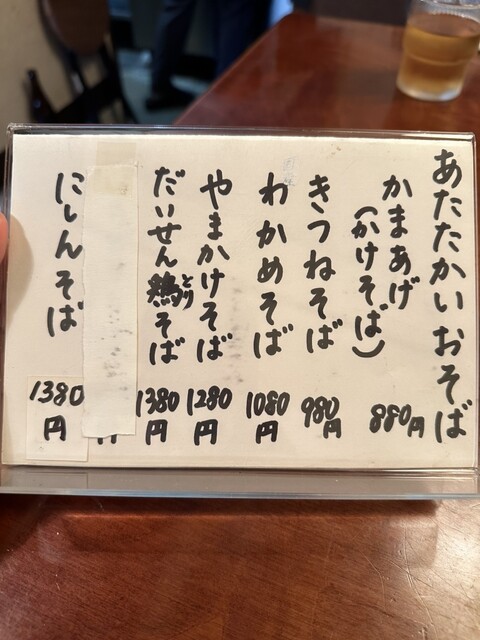 あたたかいおそば
かまあげ
(かけそば)
880円
きつねそば
980円
わかめそば
1080円
やまかけそば
1280円
だいせん鶏そば
とり
1380円
円
にしんそば
1380円